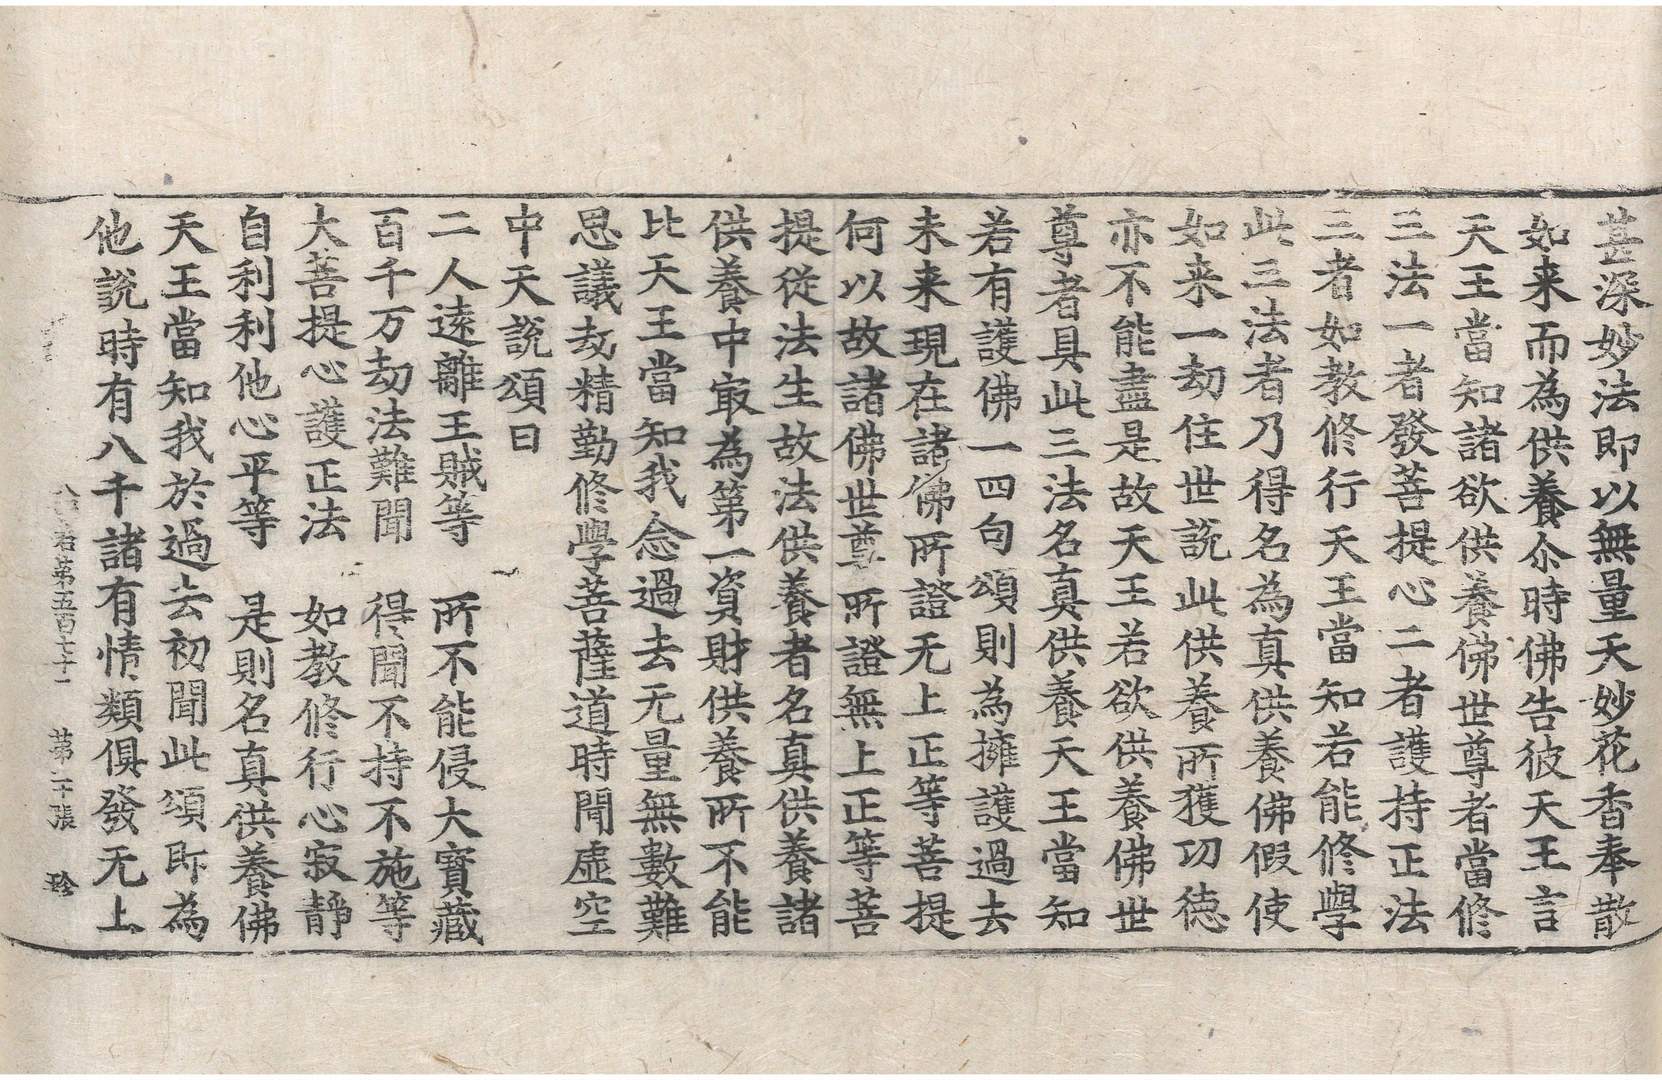 甚深妙法即以無量天妙花香奉散
如来而為供養尒時佛告彼天王言
天王當知諸欲供養佛世尊者當修
三法一者發菩提心二者護持正法
三者如教修行天王當知若能修學
此三法者乃得名為真供養佛假使
如来一劫住世說此供養所獲功德
亦不能盡是故天王若欲供養佛世
尊者具此三法名真供養天王當知
若有護佛一四句頌則為擁護過去
未来現在諸佛所證无上正等菩提
何以故諸佛世尊所證無上正等菩
提從法生故法供養者名真供養諸
供養中㝡為第一資財供養所不能
比天王當知我念過去无量無數難
思議劫精勤修學菩薩道時聞虛空
中天說頌曰
二人遠離王賊等　所不能侵大寶藏
百千万劫法難聞　得聞不持不施等
大菩提心護正法　如教修行心寂靜
自利利他心平等　是則名真供養佛
天王當知我於過去初聞此頌即為
他說時有八千諸有情類俱發无上
若第五百七十一　第二十張　珎